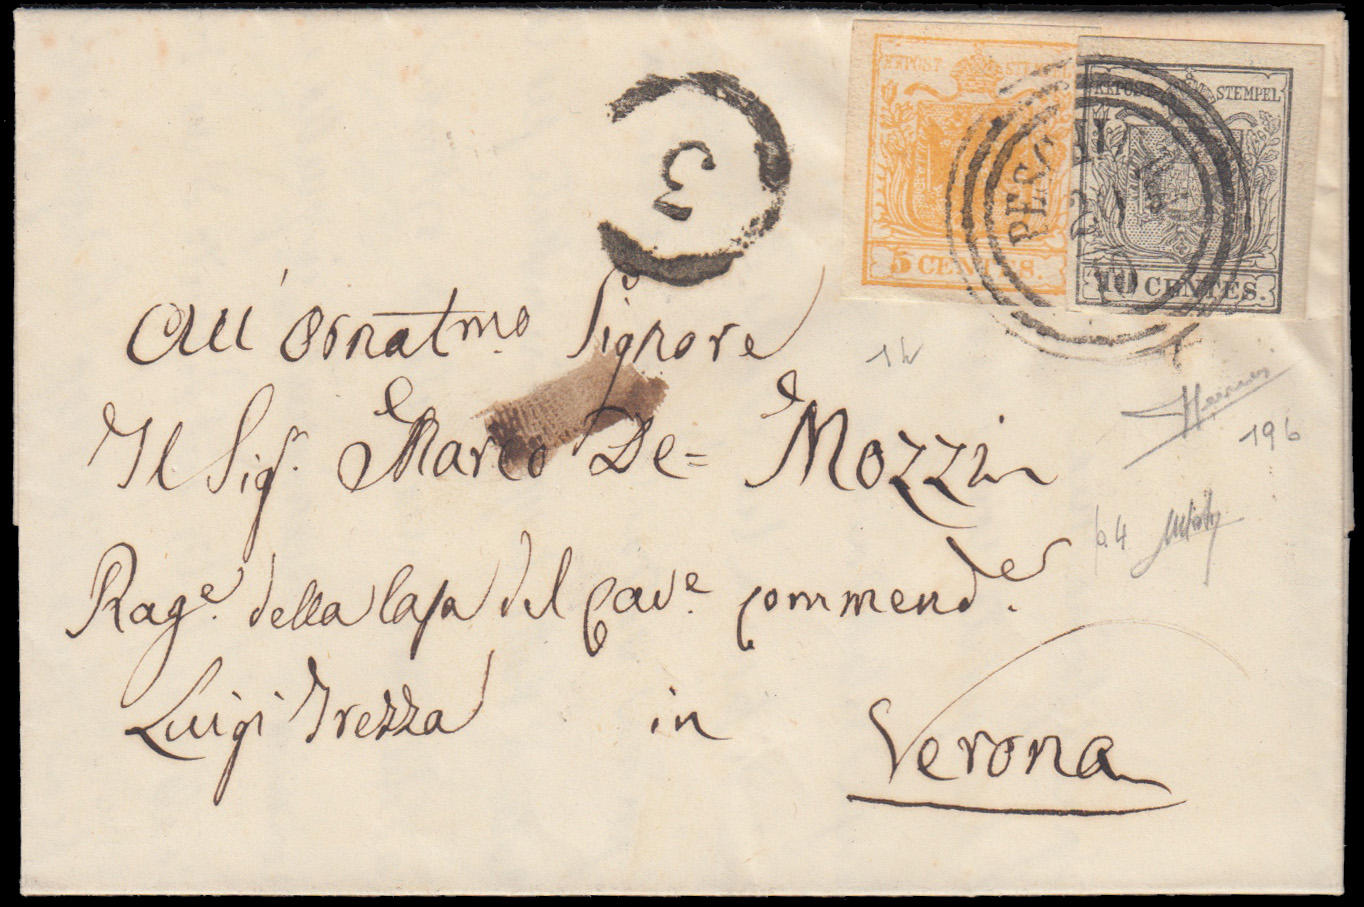 KKPOST STEMPEL
5 CENTES.
KKPOST STEMPEL
10 CENTES.
PESC
2
10
3
All' Ornatmo Signore
Il Sigr. Marco De= Mozzi
Rage. della Casa del Cave. Commende.
Luigi Trezza in Verona
196
64